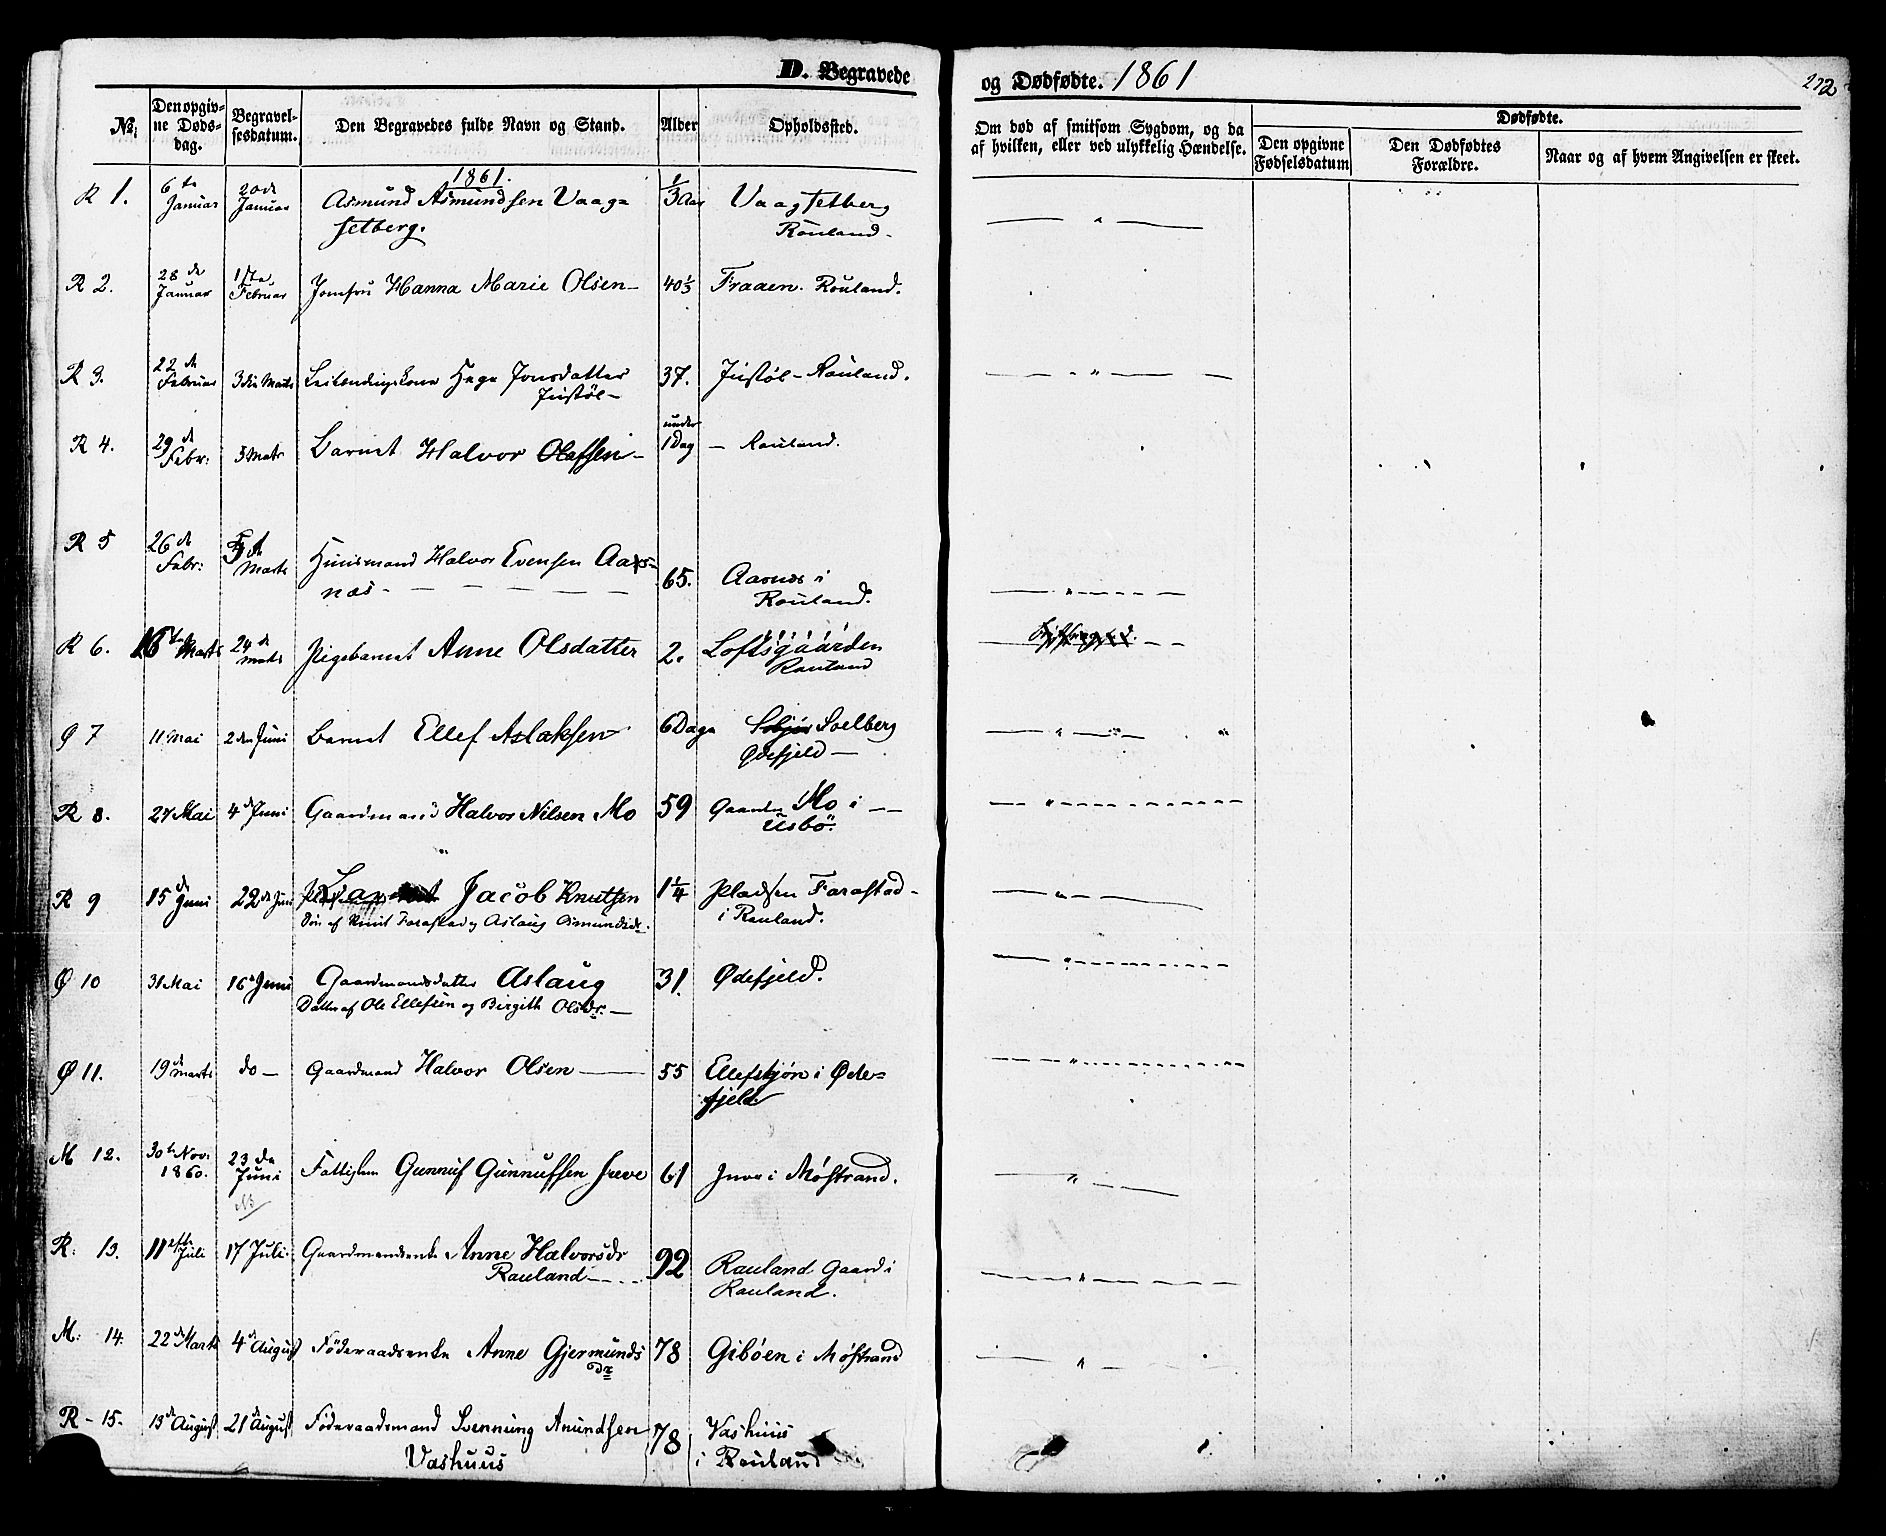 D. Begravede
No.
Den opgivne Døds-dag.
Begravel-sesdatum.
Den Begravedes fulde Navn og Stand.
Alder
Opholdssted.
og Dødfødte. 1861
232
Om død af smitsom Sygdom, og da
af hvilken, eller ved ulykkelig Hændelse.
Dødfødte.
Den opgivne Fødselsdatum
Den Dødfødtes Forældre.
Naar og af hvem Angivelsen er skeet.
1861.
R 1. 6te Januar 20de Januar Asmund Asmundsen Vaag- 1/3 Aar Vaagsetberg
setberg. Rauland
R 2. 28de Januar 1ste Februar Jomfru Hanna Marie Olsen 40 1/3 Fraaen. Rauland.
R 3. 22de Februar 3die Marts Leilendingskone Hege Jonsdatter 37. Justøl - Rauland.
Justøl
R 4. 29de Febr: 3 Marts Barnet Halvor Olafsen under 1 Dag — Rauland.
R 5 26de Febr: Marts Huusmand Halvor Evensen Aars- 65. Aarnes i
næs Rauland.
R 6. 16te Marts 24de Marts Pigebarnet Anne Olsdatter 2. Loftsgaarden
Rauland
Ø 7 11 Mai 2den Juni Barnet Ellef Aslaksen 6 Dage Soelberg
Ødefjeld
R 8. 27 Mai 4de Juni Gaardmand Halvor Nilsen Mo 59 Gaarden Mo i
Usbø.
R 9 15de Juni 22de Juni Jacob Knutsen 1 1/4 Pladsen Farastad
Søn af Knut Farastad og Aslaug Asmundsdr. i Rauland.
Ø 10 31 Mai 16de Juni Gaardmandsdatter Aslaug 31. Ødefjeld.
Datter af Ole Ellefsen og Birgith Olsdr.
Ø 11. 19de Marts do — Gaardmand Halvor Olsen 55 Ellefstjøn i Øde-
fjeld
M 12. 30te Nov: 1860. 23de Juni Fattiglem Gunnuf Gunnufsen 61 i Møstrand.
NB
R: 13. 11te Juli 17 Juli. Gaardmandsenke Anne Halvorsdr 92 Rauland Gaard i
Rauland Rauland.
M: 14. 22de Marts 4de August Føderaadsenke Anne Gjermunds 78 Gibøen i Møstrand
dr
R - 15. 13de August 21de August Føderaadsmand Svennung Anundsen 78 Vashuus
Vashuus i Rauland